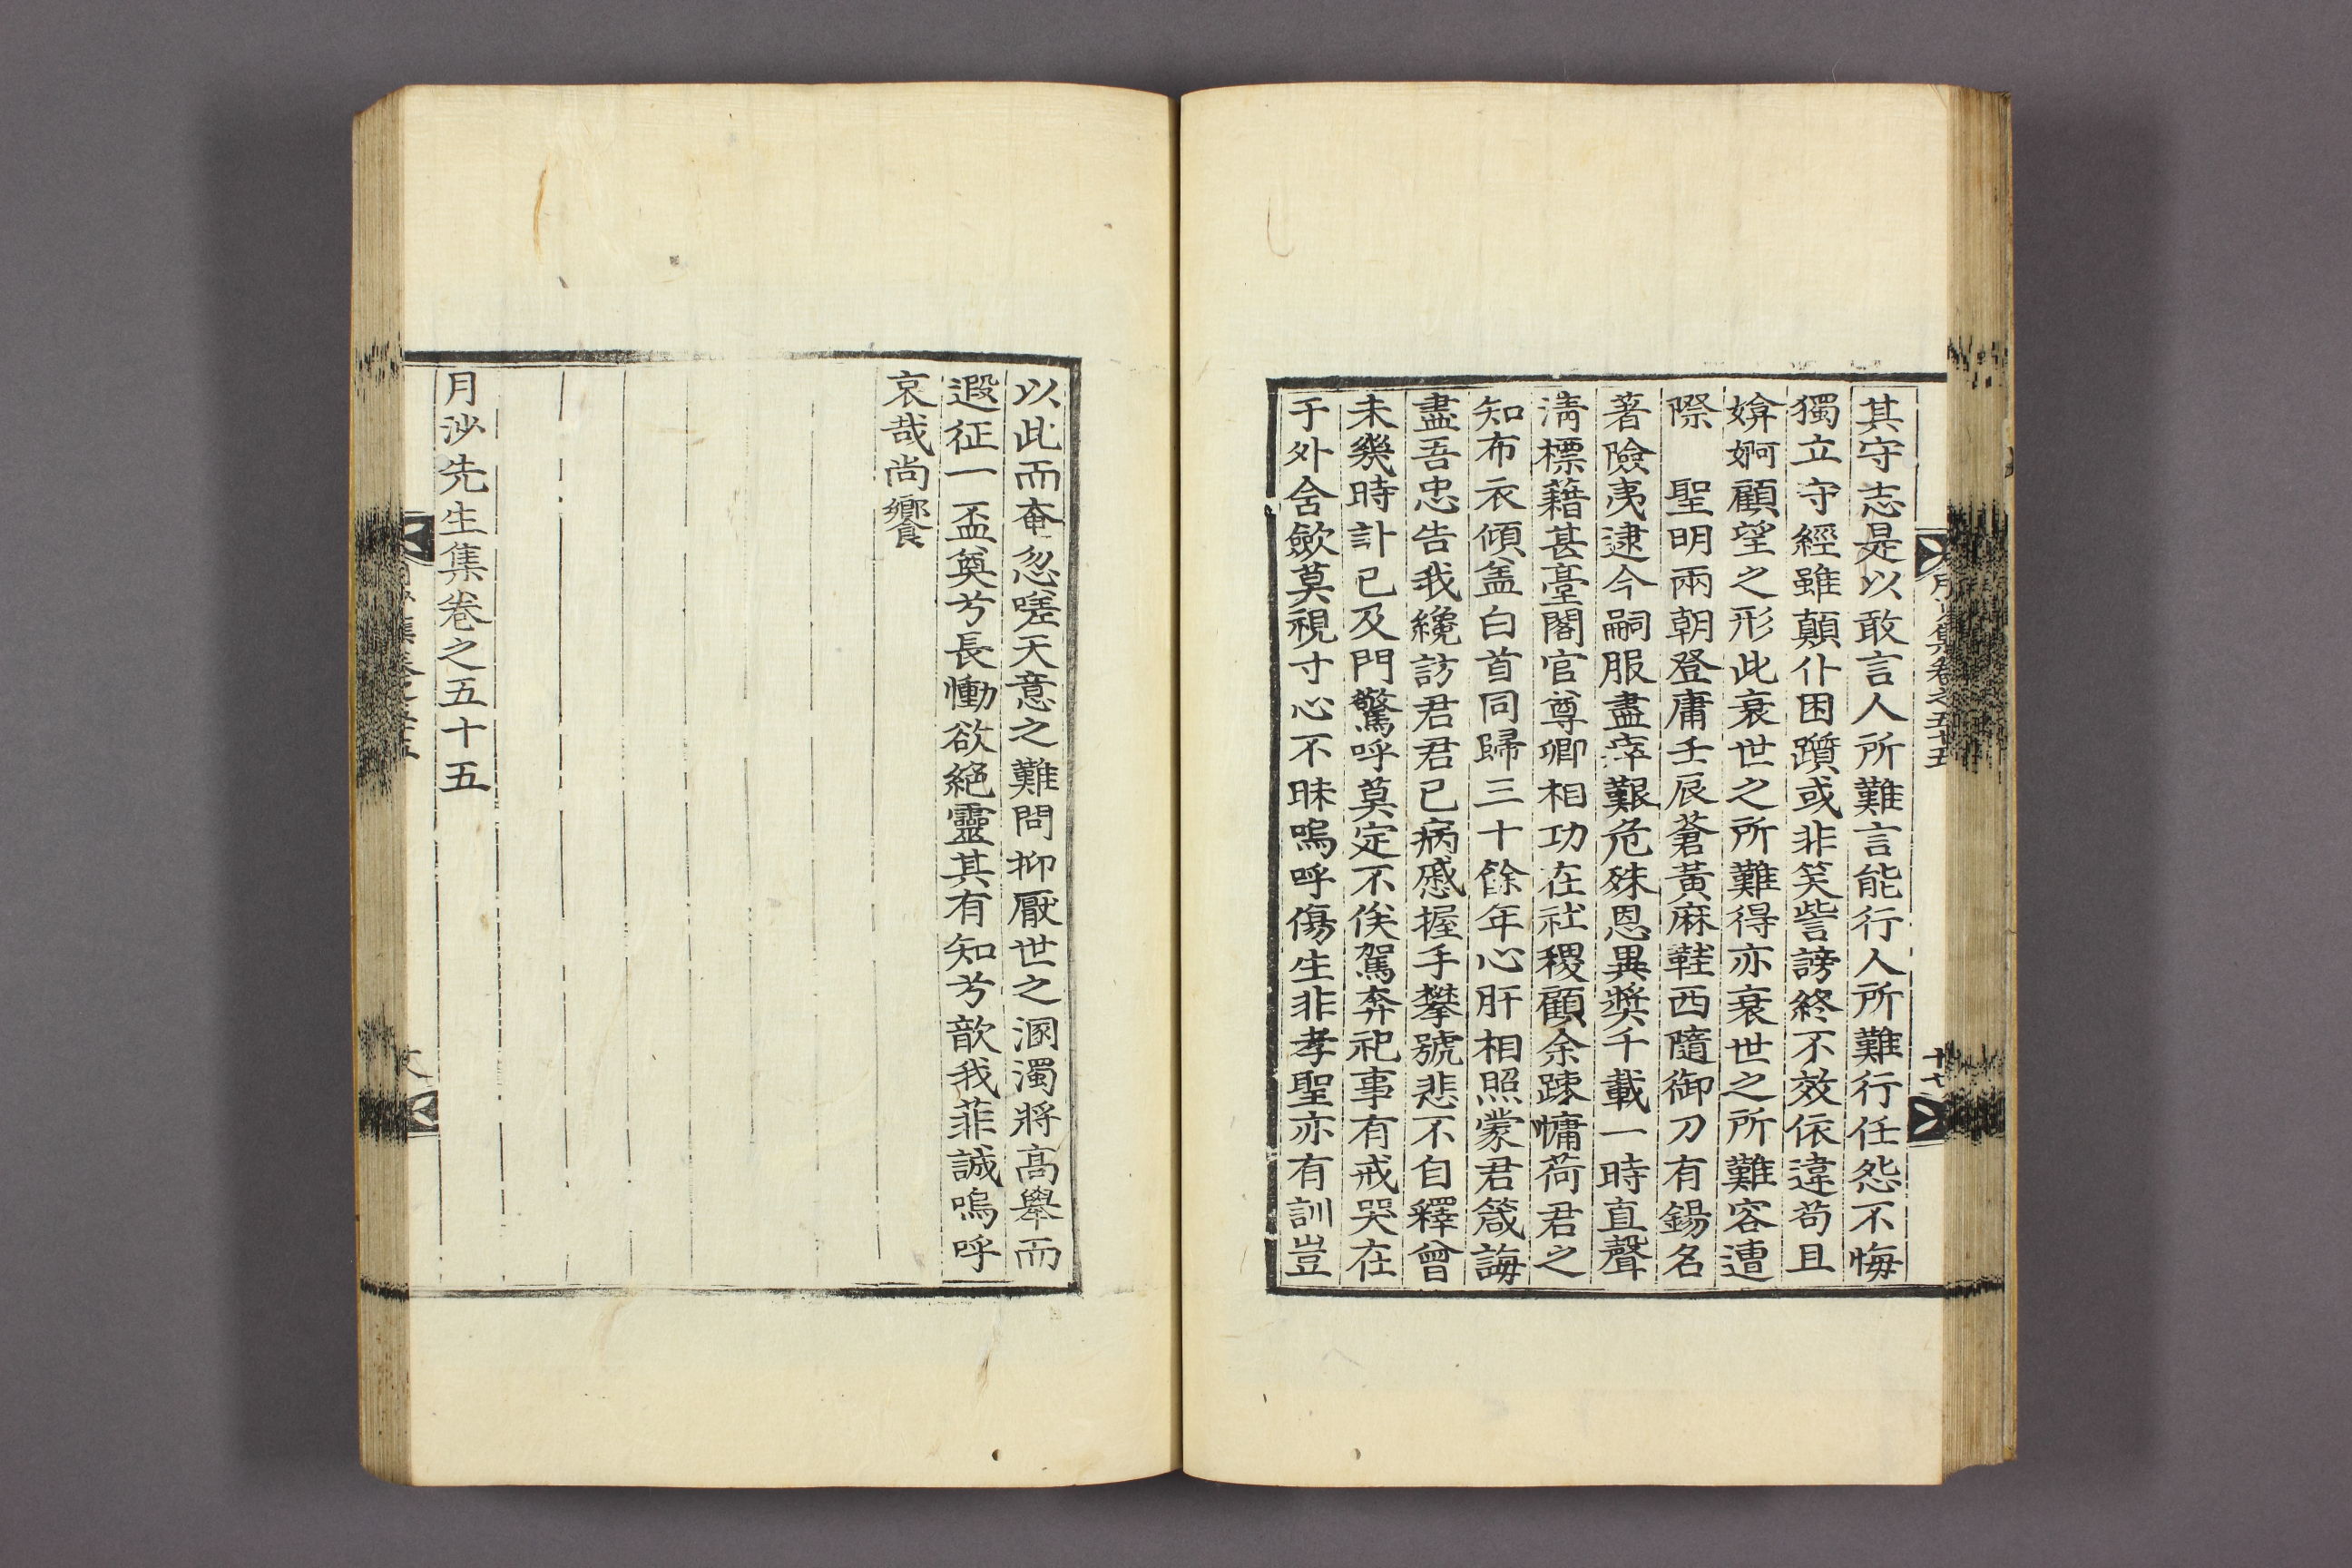 其守志是以敢言人所難言能行人所難行任怨不悔
獨立守經雖顛仆困躓或非笑訾謗終不效依違苟且
媕婀顧望之形此衰世之所難得亦衰世之所難容遭
際　聖明兩朝登庸壬辰蒼黃麻鞋西隨御刀有錫名
著險夷逮今嗣服盡瘁艱危殊恩異奬千載一時直聲
淸標藉甚臺閣官尊卿相功在社稷顧余踈慵荷君之
知布衣傾盖白首同歸三十餘年心肝相照蒙君箴誨
盡吾忠告我纔訪君君已病慼握手攀號悲不自釋曾
未幾時訃已及門驚呼莫定不俟駕奔祀事有戒哭在
于外含歛莫視寸心不昧嗚呼傷生非孝聖亦有訓豈
月沙集卷之五十五
以此而奄忽嗟天意之難問抑厭世之溷濁將高擧而
遐征一盃奠兮長慟欲絶靈其有知兮歆我菲誠嗚呼
哀哉尚饗
月沙先生集卷之五十五